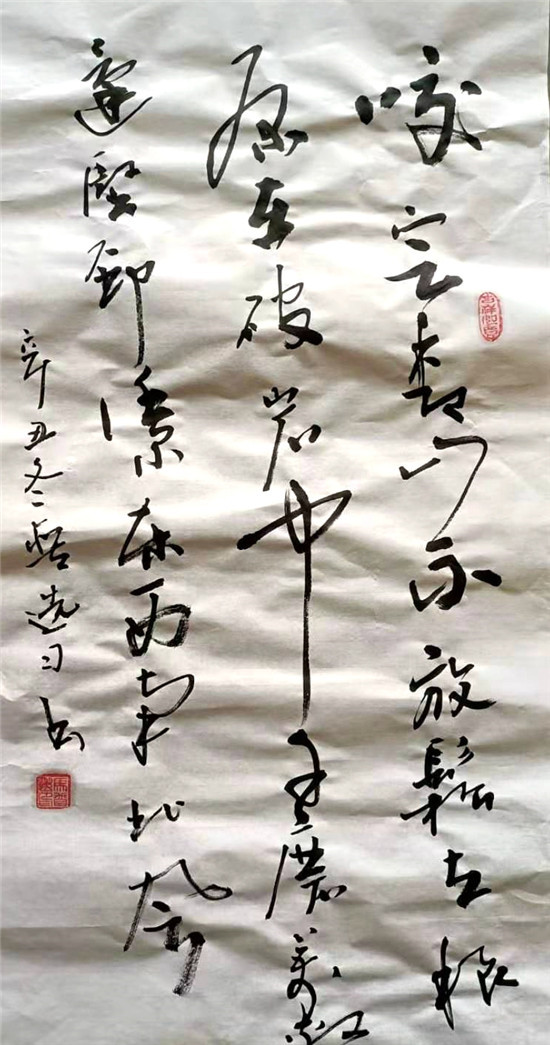 咬定青山不放鬆立根
原在破岩中千磨萬擊
還堅勁任爾東西南北風
辛丑冬